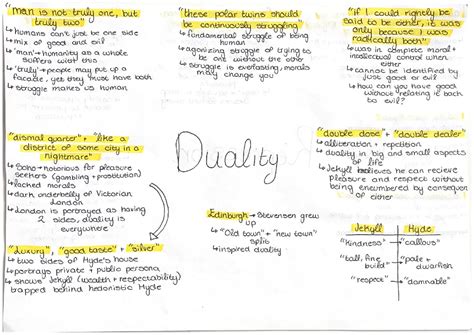 "man is not truly one, but
truly two"
↳ humans can't just be one side
↳ mix of good and evil
↳ 'man' → humanity as a whole
suffers with this
↳ 'truly' → people may put up a
facade, yet they must have both
↳ struggle makes us human
"these polar twins should
be continuously struggling"
↳ fundamental struggle of being
human
↳ agonizing struggle of trying to
be one without the other
↳ struggle is everlasting, morals
may change you
"if I could rightly be
said to be either, it was
only because I was
radically both"
↳ was in complete moral +
intellectual control when
either
↳ cannot be identified by
just good or evil
↳ how can you have good
without relating it back
to evil?
"dismal quarter" + "like a
district of some city in a
nightmare"
↳ Soho → notorious for pleasure
seekers (gambling + prostitution)
↳ lacked morals
↳ dark underbelly of Victorian
London
↳ London is portrayed as having
2 sides, duality is
everywhere
Duality
"double dose" + "double dealer"
↳ alliteration + repetition
↳ duality in big and small aspects
of life
↳ Jekyll believes he can recieve
pleasure and respect without
being encumbered by consequences
of either
Edinburgh → Stevenson grew
↳ "Old town" + "new town"
split
↳ inspired duality
"luxury", "good taste" + "silver"
↳ two sides of Hyde's house
↳ portrays private + public persona
↳ shows Jekyll (wealth + respectability)
trapped behind hedonistic Hyde
Jekyll | Hyde
"kindness" | "callous"
"tall, fine build" | "pale + dwarfish"
"respect" | "damnable"